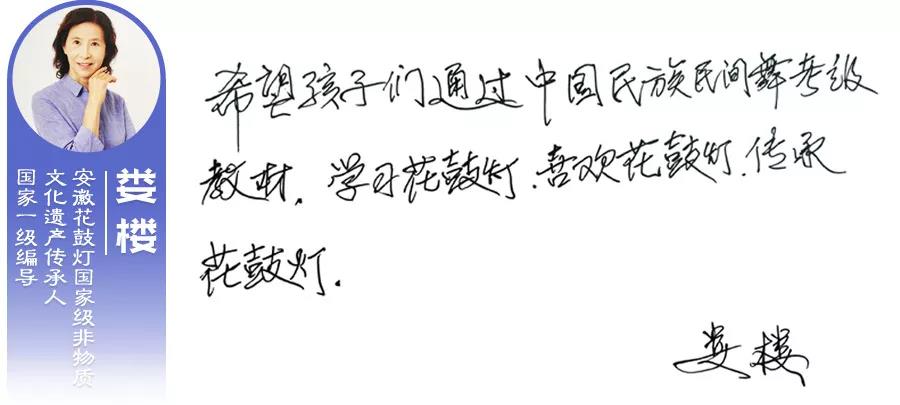 娄楼
安徽花鼓灯国家级非物质
文化遗产传承人
国家一级编导
希望孩子们通过中国民族民间舞考级
教材，学习花鼓灯、喜欢花鼓灯、传承
花鼓灯．
娄楼